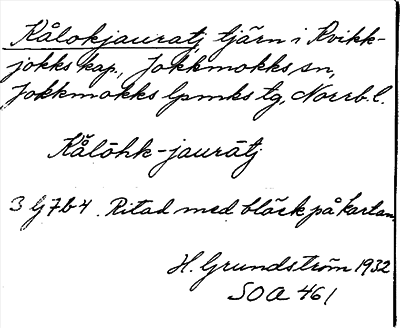 Kålokjauratj, tjärn i Kvikk-
jokks kap., Jokkmokks sn,
Jokkmokks lpmks tg, Norrb. l.
Kålōhk-jaurātj
3 G 7b4. Ritad med bläck på kartan.
H. Grundström 1932
SOA 461